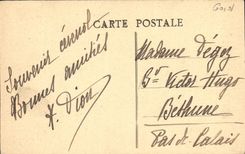 CARTE POSTALE
Souvenir
Bonnes amitiés
F. Dion
Madame
Bd Victor Hugo
Béthune
Pas de Calais